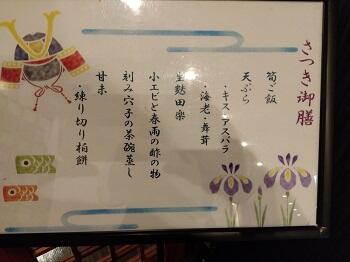 さつき御膳
筍ご飯
天ぷら
・キス・アスパラ
・海老・舞茸
生麩田楽
小エビと春雨の酢の物
刻み穴子の茶碗蒸し
甘味
・練り切り柏餅